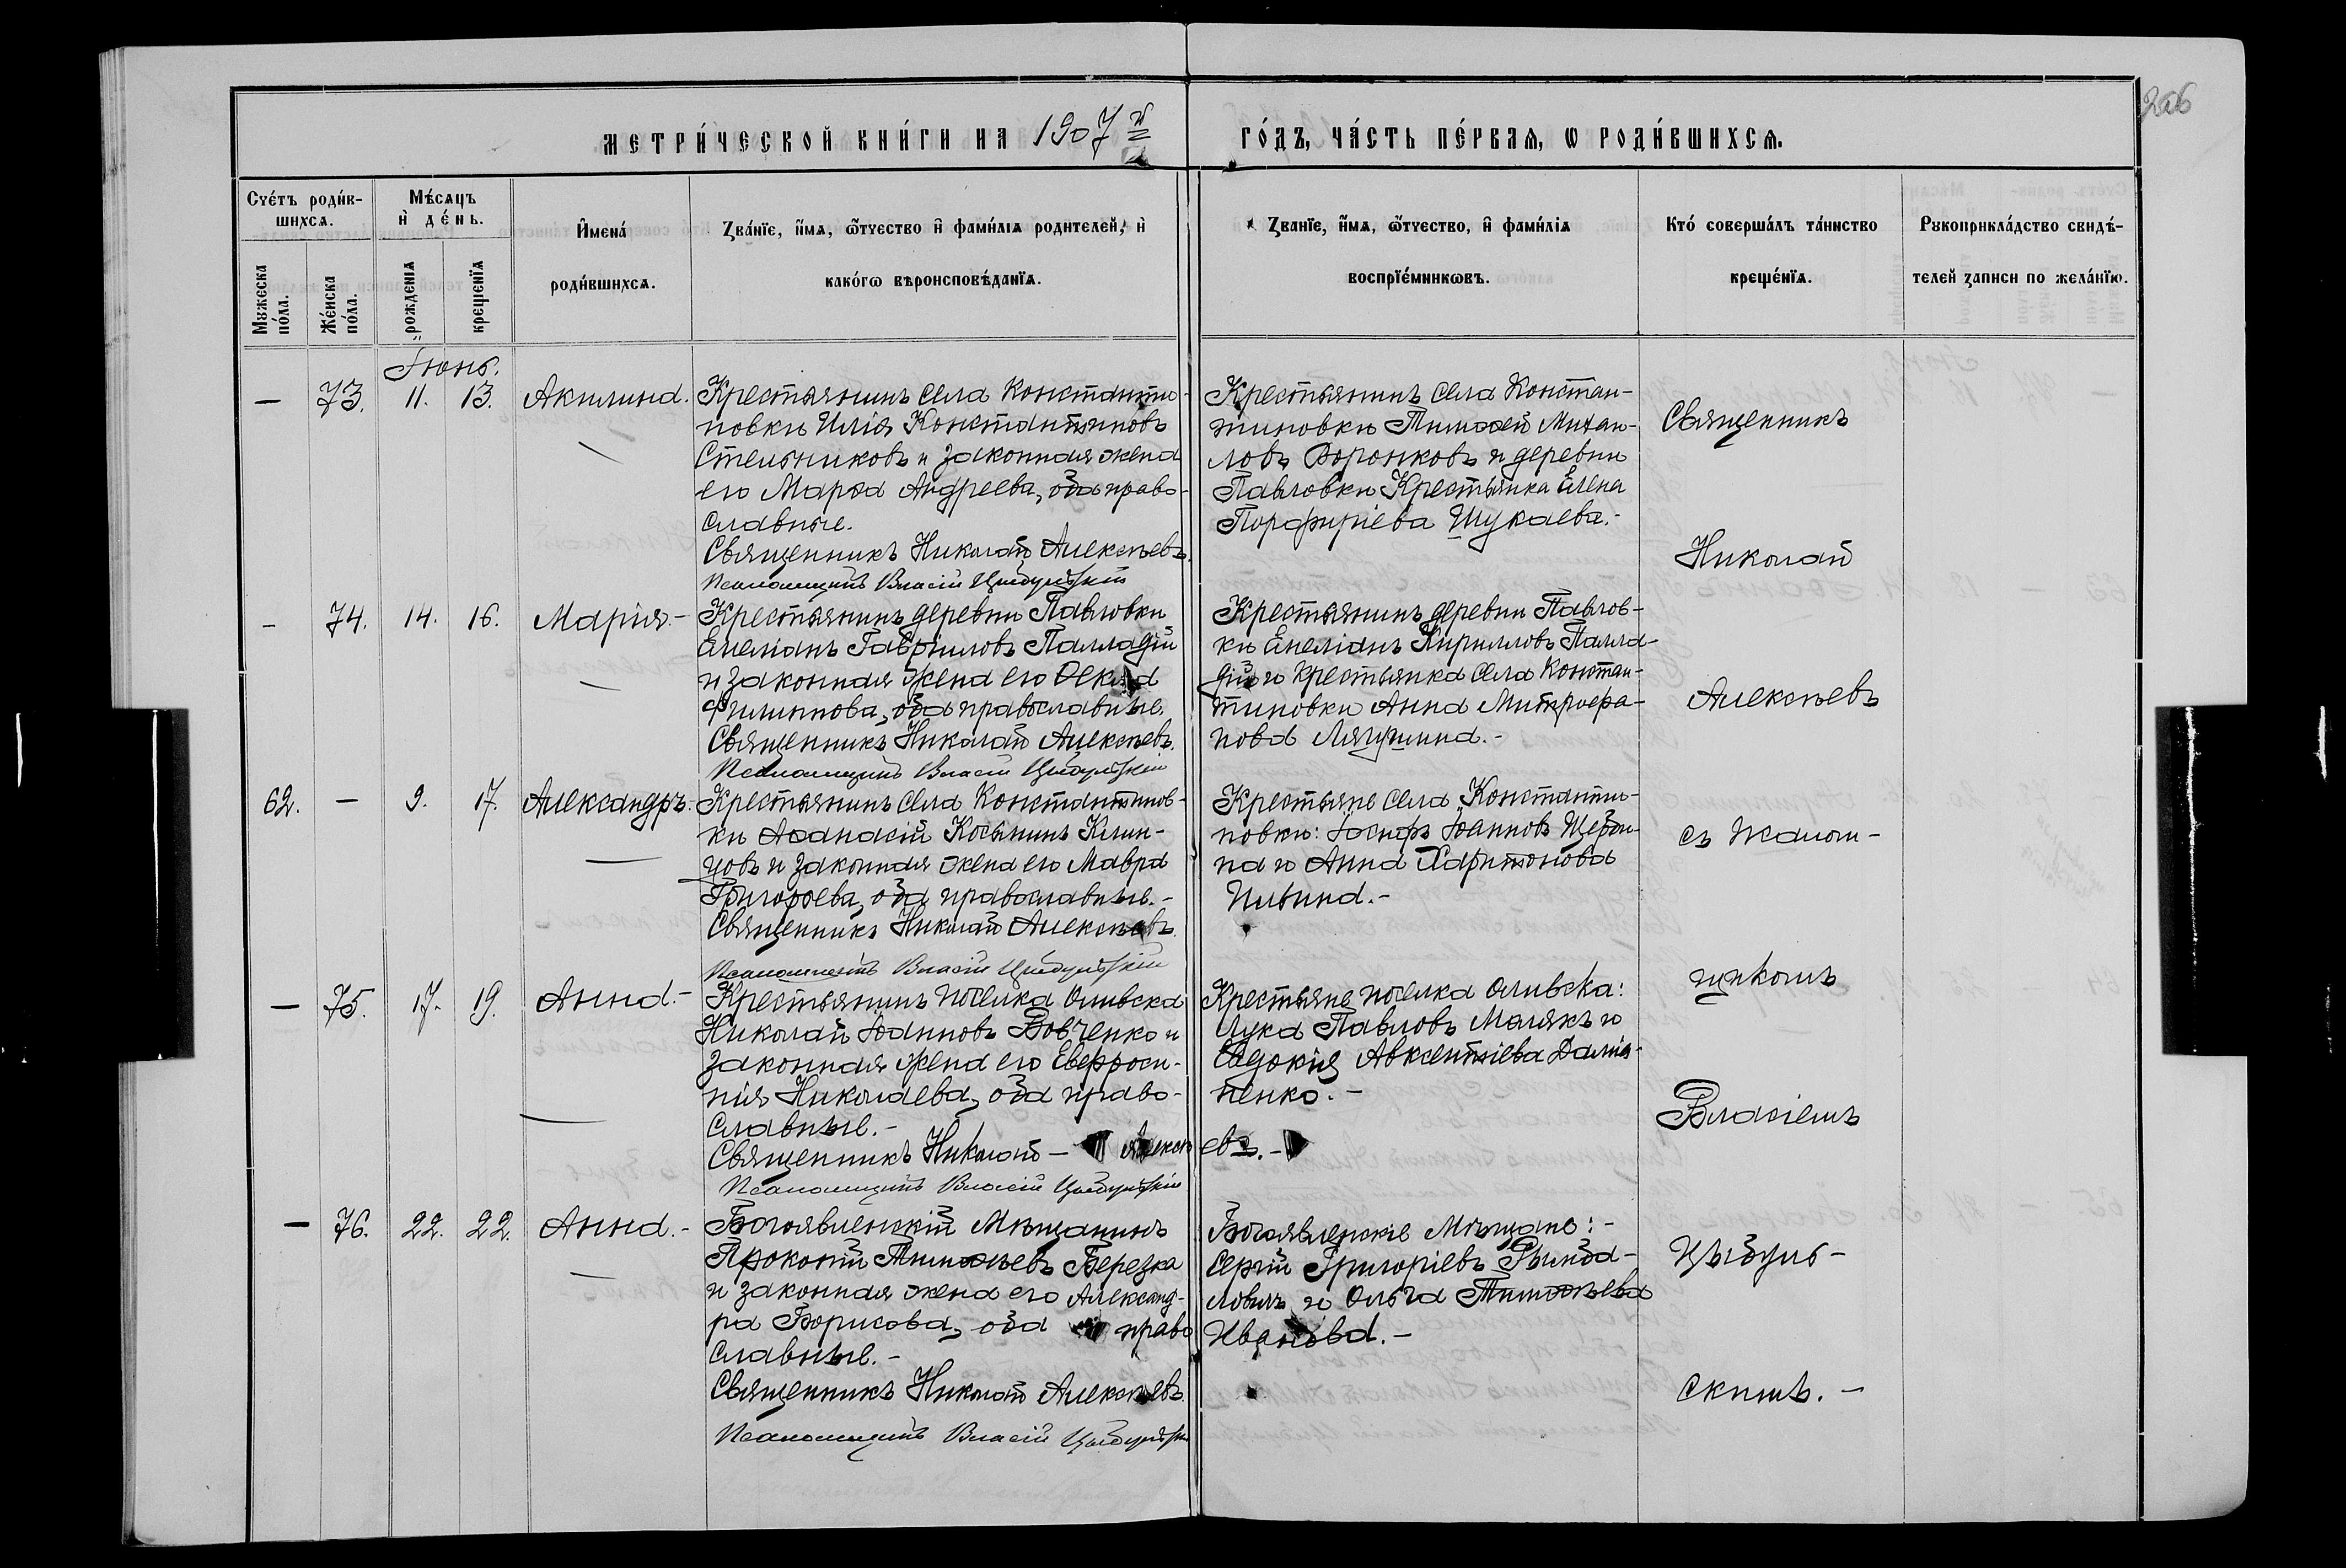 206
Метри́ческой кни́ги на 1907й
го́дъ, ча́сть пе́рвая, ѡ роди́вшихсѧ.
Сче́тъ роди́в-
шихсѧ.
Мꙋжеска по́ла.
Же́нска по́ла.
Мѣ́сѧцъ
и҆ де́нь.
рожденїѧ
крещенїѧ
И҆мена́
роди́вшихсѧ.
Зва́нїе, и҆́мѧ, ѻ҆́тчество и҆ фами́лїѧ родителей, и҆
како́гѡ вѣроисповѣ́данїѧ.
Званїе, и҆́мѧ, ѻ҆́тчество, и҆ фами́лїѧ
воспрїе́мникѡвъ.
Кто́ соверша́лъ та́инство
креще́нїѧ.
Рꙋкоприкла́дство свидѣ́-
телей записи по жела́нїю.
Іюнь.
— 73. 11. 13. Акилина.
Крестьянинъ села Константи-
новки Илія Константиновъ
Стельниковъ и законная жена
его Марѳа Андреева, оба право-
славные.
Священникъ Николай Алексѣевъ.
Псаломщикъ Власій Цыбульскій
Крестьянинъ села Констан-
тиновки Тимоѳей Михаи-
ловъ Воронковъ и деревни
Павловки Крестьянка Елена
Порфиріева Шукаева.-
— 74. 14. 16. Марія.-
Крестьянинъ деревни Павловки
Емеліанъ Гавріиловъ Палладій
и законная жена его Ѳекла
Филиппова, оба православные.
Священникъ Николай Алексѣевъ.
Псаломщикъ Власій Цыбульскій
Крестьянинъ деревни Павлов-
ки Емеліанъ Кирилловъ Палла-
дій и Крестьянка села Констан-
тиновки Анна Митрофа-
нова Лягушина.-
62. — 9. 17. Александръ.
Крестьянинъ села Константинов-
ки Аѳанасій Косьминъ Клим-
цовъ и законная жена его Мавра
Григорьева, оба православные.-
Священникъ Николай Алексѣевъ.
Псаломщикъ Власій Цыбульскій
Крестьяне села Константи-
новки: Іосифъ Іоанновъ Щерби-
на и Анна Харитонова
Ильина.-
— 75. 17. 19. Анна.-
Крестьянинъ поселка Ольвска
Николай Іоанновъ Вовченко и
законная жена его Евфроси-
нія Николаева, оба право-
славные.-
Священникъ Николай — Алексѣевъ.-
Псаломщикъ Власій Цыбульскій
Крестьяне поселка Ольвска:
Лука Павловъ Малякъ и
Евдокія Авксентіева Дами-
ненко.-
— 76. 22. 22. Анна.-
Богоявленскій Мѣщанинъ
Прокопій Тимоѳеевъ Березка
и законная жена его Александ-
ра Борисова, оба право
славные.-
Священникъ Николай Алексѣевъ.
Псаломщикъ Власій Цыбульскій
Богоявленскіе Мѣщане:-
Сергій Григоріевъ Рымба-
ловичъ и Ольга Тимоѳеева
Иванова.-
Священникъ
Николай
Алексѣевъ
съ Псалом-
щикомъ
Власіемъ
Цыбуль-
скимъ.-